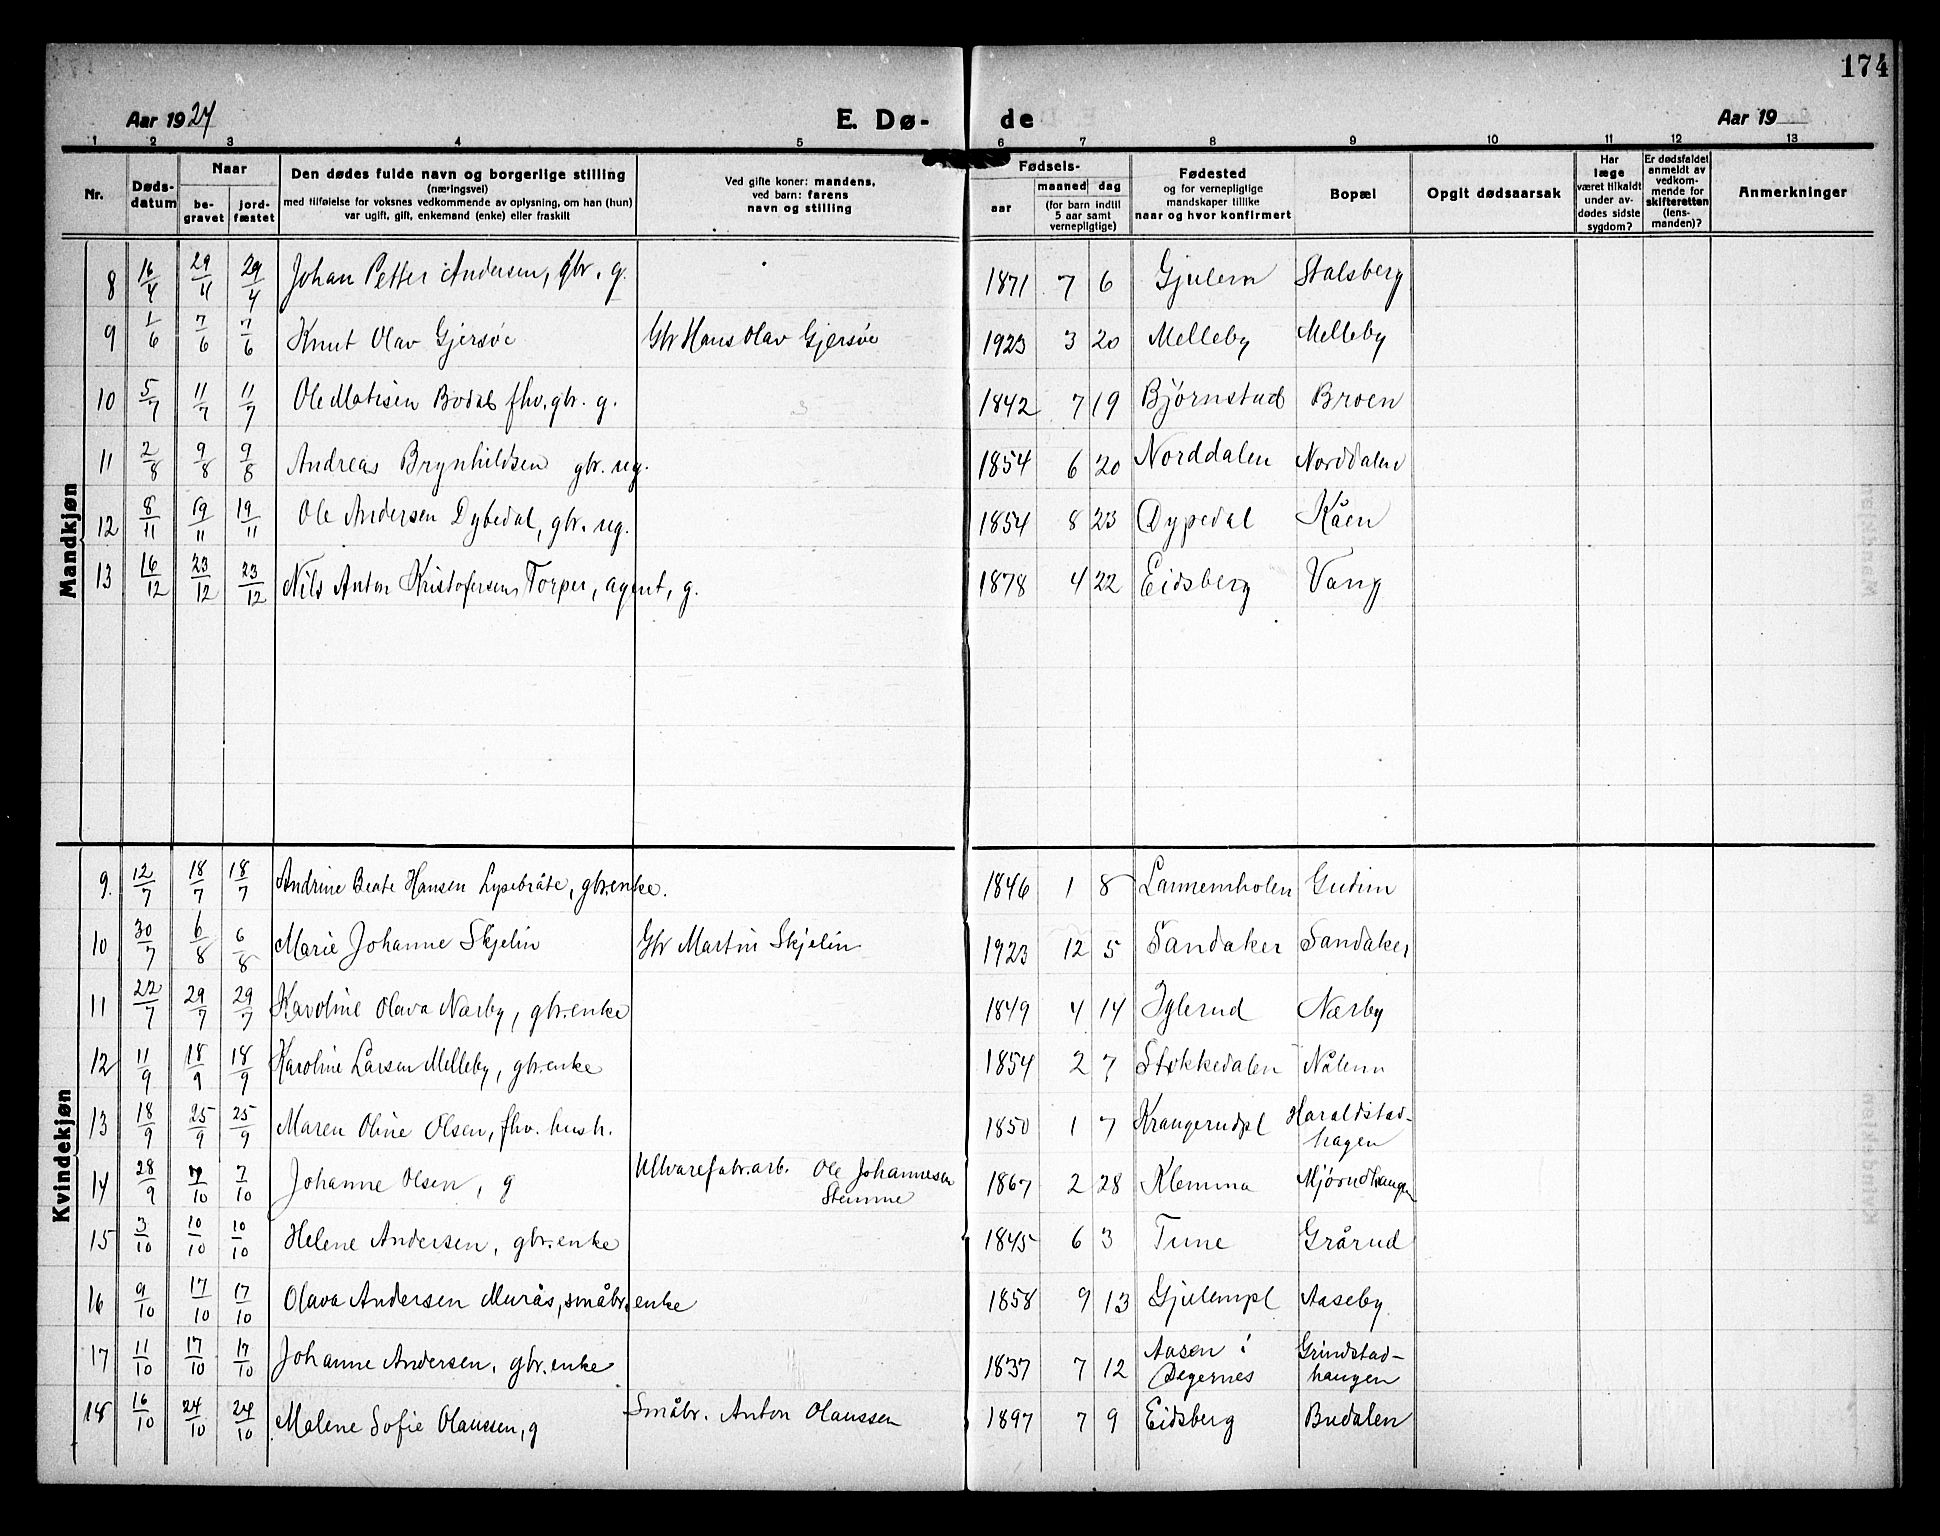 174
Aar 1924 E. Dø- de Aar 19
1 2 3 4 5 6 7 8 9 10 11 12 13
Nr. Døds-datum Naar be-gravet jord-fæstet Den dødes fulde navn og borgerlige stilling (næringsvei) med tilføielse for voksnes vedkommende av oplysning, om han (hun) var ugift, gift, enkemand (enke) eller fraskilt Ved gifte koner: mandens, ved barn: farens navn og stilling Fødsels- aar maaned dag (for barn indtil 5 aar samt vernepligtige) Fødested og for vernepligtige mandskaper tillike naar og hvor konfirmert Bopæl Opgit dødsaarsak Har læge været tilkaldt under av-dødes sidste sygdom? Er dødsfaldet anmeldt av vedkom-mende for skifteretten (lens-manden)? Anmerkninger
Mandkjøn
8 16/4 29/4 29/4 Johan Petter Andersen, gbr. g. 1871 7 6 Gjulem Stalsberg
9 1/6 7/6 7/6 Knut Olav Gjersøe Gbr Hans Olav Gjersøe 1923 3 20 Melleby Melleby
10 5/7 11/7 11/7 Ole Matisen Bodal fhv. gbr. g. 1842 7 19 Bjørnstad Broen
11 2/8 9/8 9/8 Andreas Brynhildsen gbr. ug. 1854 6 20 Norddalen Norddalen
12 8/11 19/11 19/11 Ole Andersen Dybedal, gbr. ug. 1854 8 23 Dypedal Kåen
13 16/12 23/12 23/12 Nils Anton Kristofersen Torper, agent, g. 1878 4 22 Eidsberg Vang
Kvindekjøn
9. 12/7 18/7 18/7 Andrine Beate Hansen Lysebråte, gbr.enke. 1846 1 8 Lannemholen Gudim
10 30/7 6/8 6/8 Marie Johanne Skjelin Gbr Martin Skjelin 1923 12 5 Sandaker Sandaker
11 22/7 29/7 29/7 Karoline Olava Nærby, gbr.enke 1849 4 14 Iglerud Nærby
12 11/9 18/9 18/9 Karoline Larsen Melleby, gbr.enke 1854 2 7 Støkkedalen Nålem
13 18/9 25/9 25/9 Maren Oline Olsen, fhv. hush. 1850 1 7 Krangerudpl Haraldstad-
hagen
14 28/9 7/10 7/10 Johanne Olsen, g Ullvarefabr.arb. Ole Johannesen
Stemme 1867 2 28 Klemma Mjørudhaugen
15 3/10 10/10 10/10 Helene Andersen, gbr.enke 1845 6 3 Tune Grårud
16 9/10 17/10 17/10 Olava Andersen Murås, småbr.enke 1858 9 13 Gjulempl Aaseby
17 11/10 17/10 17/10 Johanne Andersen, gbr.enke 1837 7 12 Aasen i
Degernes Grindstad-
haugen
18 16/10 24/10 24/10 Malene Sofie Olaussen, g Småbr. Anton Olaussen 1897 7 9 Eidsberg Budalen